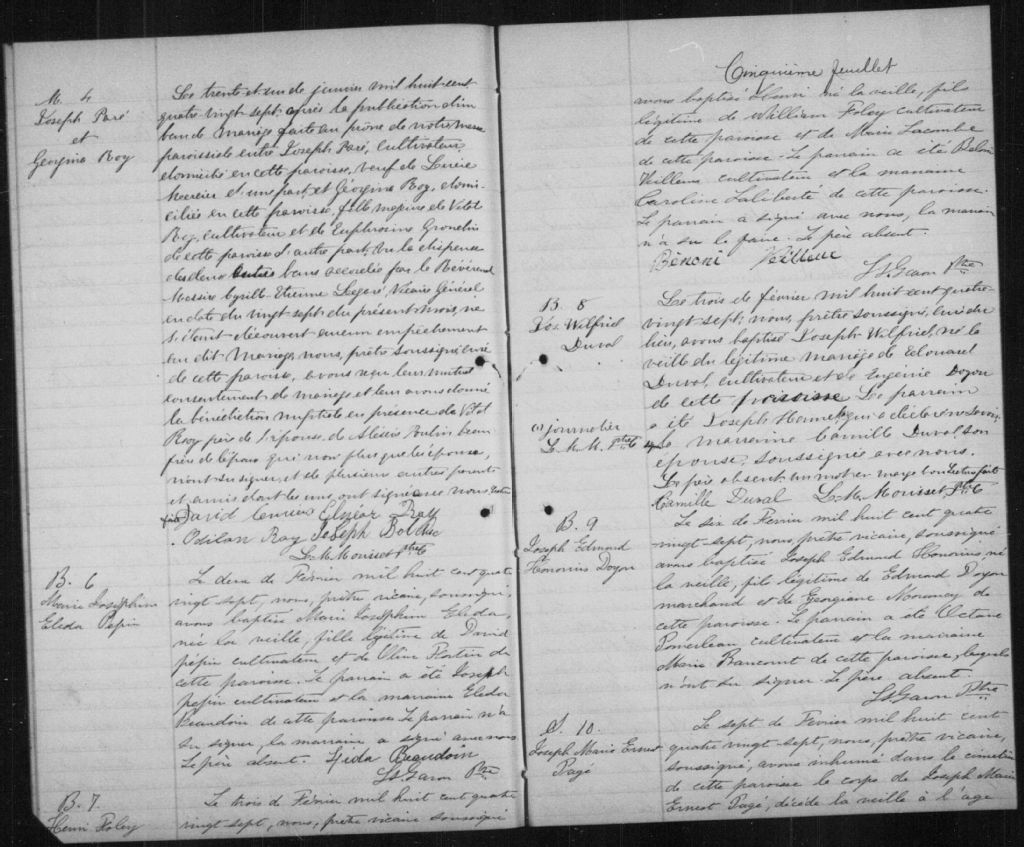 M. 4
Joseph Paré
et
Georgina Roy
Le trente et un de janvier mil huit cent
quatre vingt sept, après la publication d'un
ban de mariage faite au prône de notre messe
paroissiale entre Joseph Paré, cultivateur
domicilié en cette paroisse, veuf de Lucie
Mercier d'une part, et Géorgina Roy, domi-
ciliée en cette paroisse, fille majeure de Vital
Roy, cultivateur et de Euphrosine Grondin
de cette paroisse d'autre part, Vu la dispense
des deux autres bans accordée par le Révérend
Messire Cyrille Etienne Légaré, Vicaire Général
en date du vingt sept du présent mois, ne
s'étant découvert aucun empêchement
au dit mariage, nous, prêtre soussigné curé
de cette paroisse, avons reçu leur mutuel
consentement de mariage et leur avons donné
la bénédiction nuptiale en présence de Vital
Roy père de l'épouse, de Alexis Poulin beau
frère de l'époux qui non plus que les époux,
n'ont su signer, et de plusieurs autres parents
et amis dont les uns ont signé avec nous lecture
faite David Elzéar Roy
Odilon Roy Joseph
L. M. Mouisset Ptre
B. 6
Marie Josephine
Elida Pepin
Le deux de Février mil huit cent quatre
vingt sept, nous, prêtre vicaire, soussigné,
avons baptisé Marie Josephine Elida,
née la veille, fille légitime de David
pepin cultivateur et de Olive de
cette paroisse. Le parrain a été Joseph
pepin cultivateur et la marraine Elida
Beaudoin de cette paroisse. Le parrain n'a
su signer, la marraine a signé avec nous
Le père absent. Elida Beaudoin
Ls Garon Ptre
B. 7.
Henri Foley
Le trois de Février mil huit cent quatre
vingt sept, nous, prêtre vicaire soussigné
Cinquième feuillet
avons baptisé Henri né la veille, fils
légitime de William Foley cultivateur
de cette paroisse et de Marie Lacombe
de cette paroisse. Le parrain a été
Veilleux cultivateur et la marraine
Caroline Laliberté de cette paroisse.
Le parrain a signé avec nous, la marraine
n'a su le faire. Le père absent.
Bénoni Veilleux
Ls Garon Ptre
B. 8
Jos. Wilfrid
Duval
Le trois de février mil huit cent quatre
vingt sept, nous, prêtre soussigné, curé du
lieu, avons baptisé Joseph Wilfrid, né la
veille du légitime mariage de Edouard
Duval, cultivateur et de Eugénie Doyon
de cette paroisse Le parrain
a été Joseph qui a déclaré ne savoir
(1) journalier
L. M. M. Ptre
signer La marraine Camille Duval, son
épouse, soussignée avec nous.
Le père absent un mot en marge bon Lecture faite
Camille Duval L. M. Mouisset Ptre
B. 9
Joseph Edmond
Honorius Doyon
Le six de Fevrier mil huit cent quatre
vingt-sept, nous, prêtre vicaire, soussigné
avons baptisé Joseph Edmond Honorius, né
la veille, fils légitime de Edmond Doyon
marchand et de Georgiane de
cette paroisse. Le parrain a été Octave
Pomerleau cultivateur et la marraine
Marie de cette paroisse, lesquels
n'ont su signer. Le père absent.
Ls Garon Ptre
S. 10.
Joseph Marie Ernest
Pagé
Le sept de Fevrier mil huit cent
quatre vingt-sept, nous, prêtre vicaire,
soussigné, avons inhumé dans le cimetière
de cette paroisse le corps de Joseph Marie
Ernest Pagé, décédé la veille à l'age